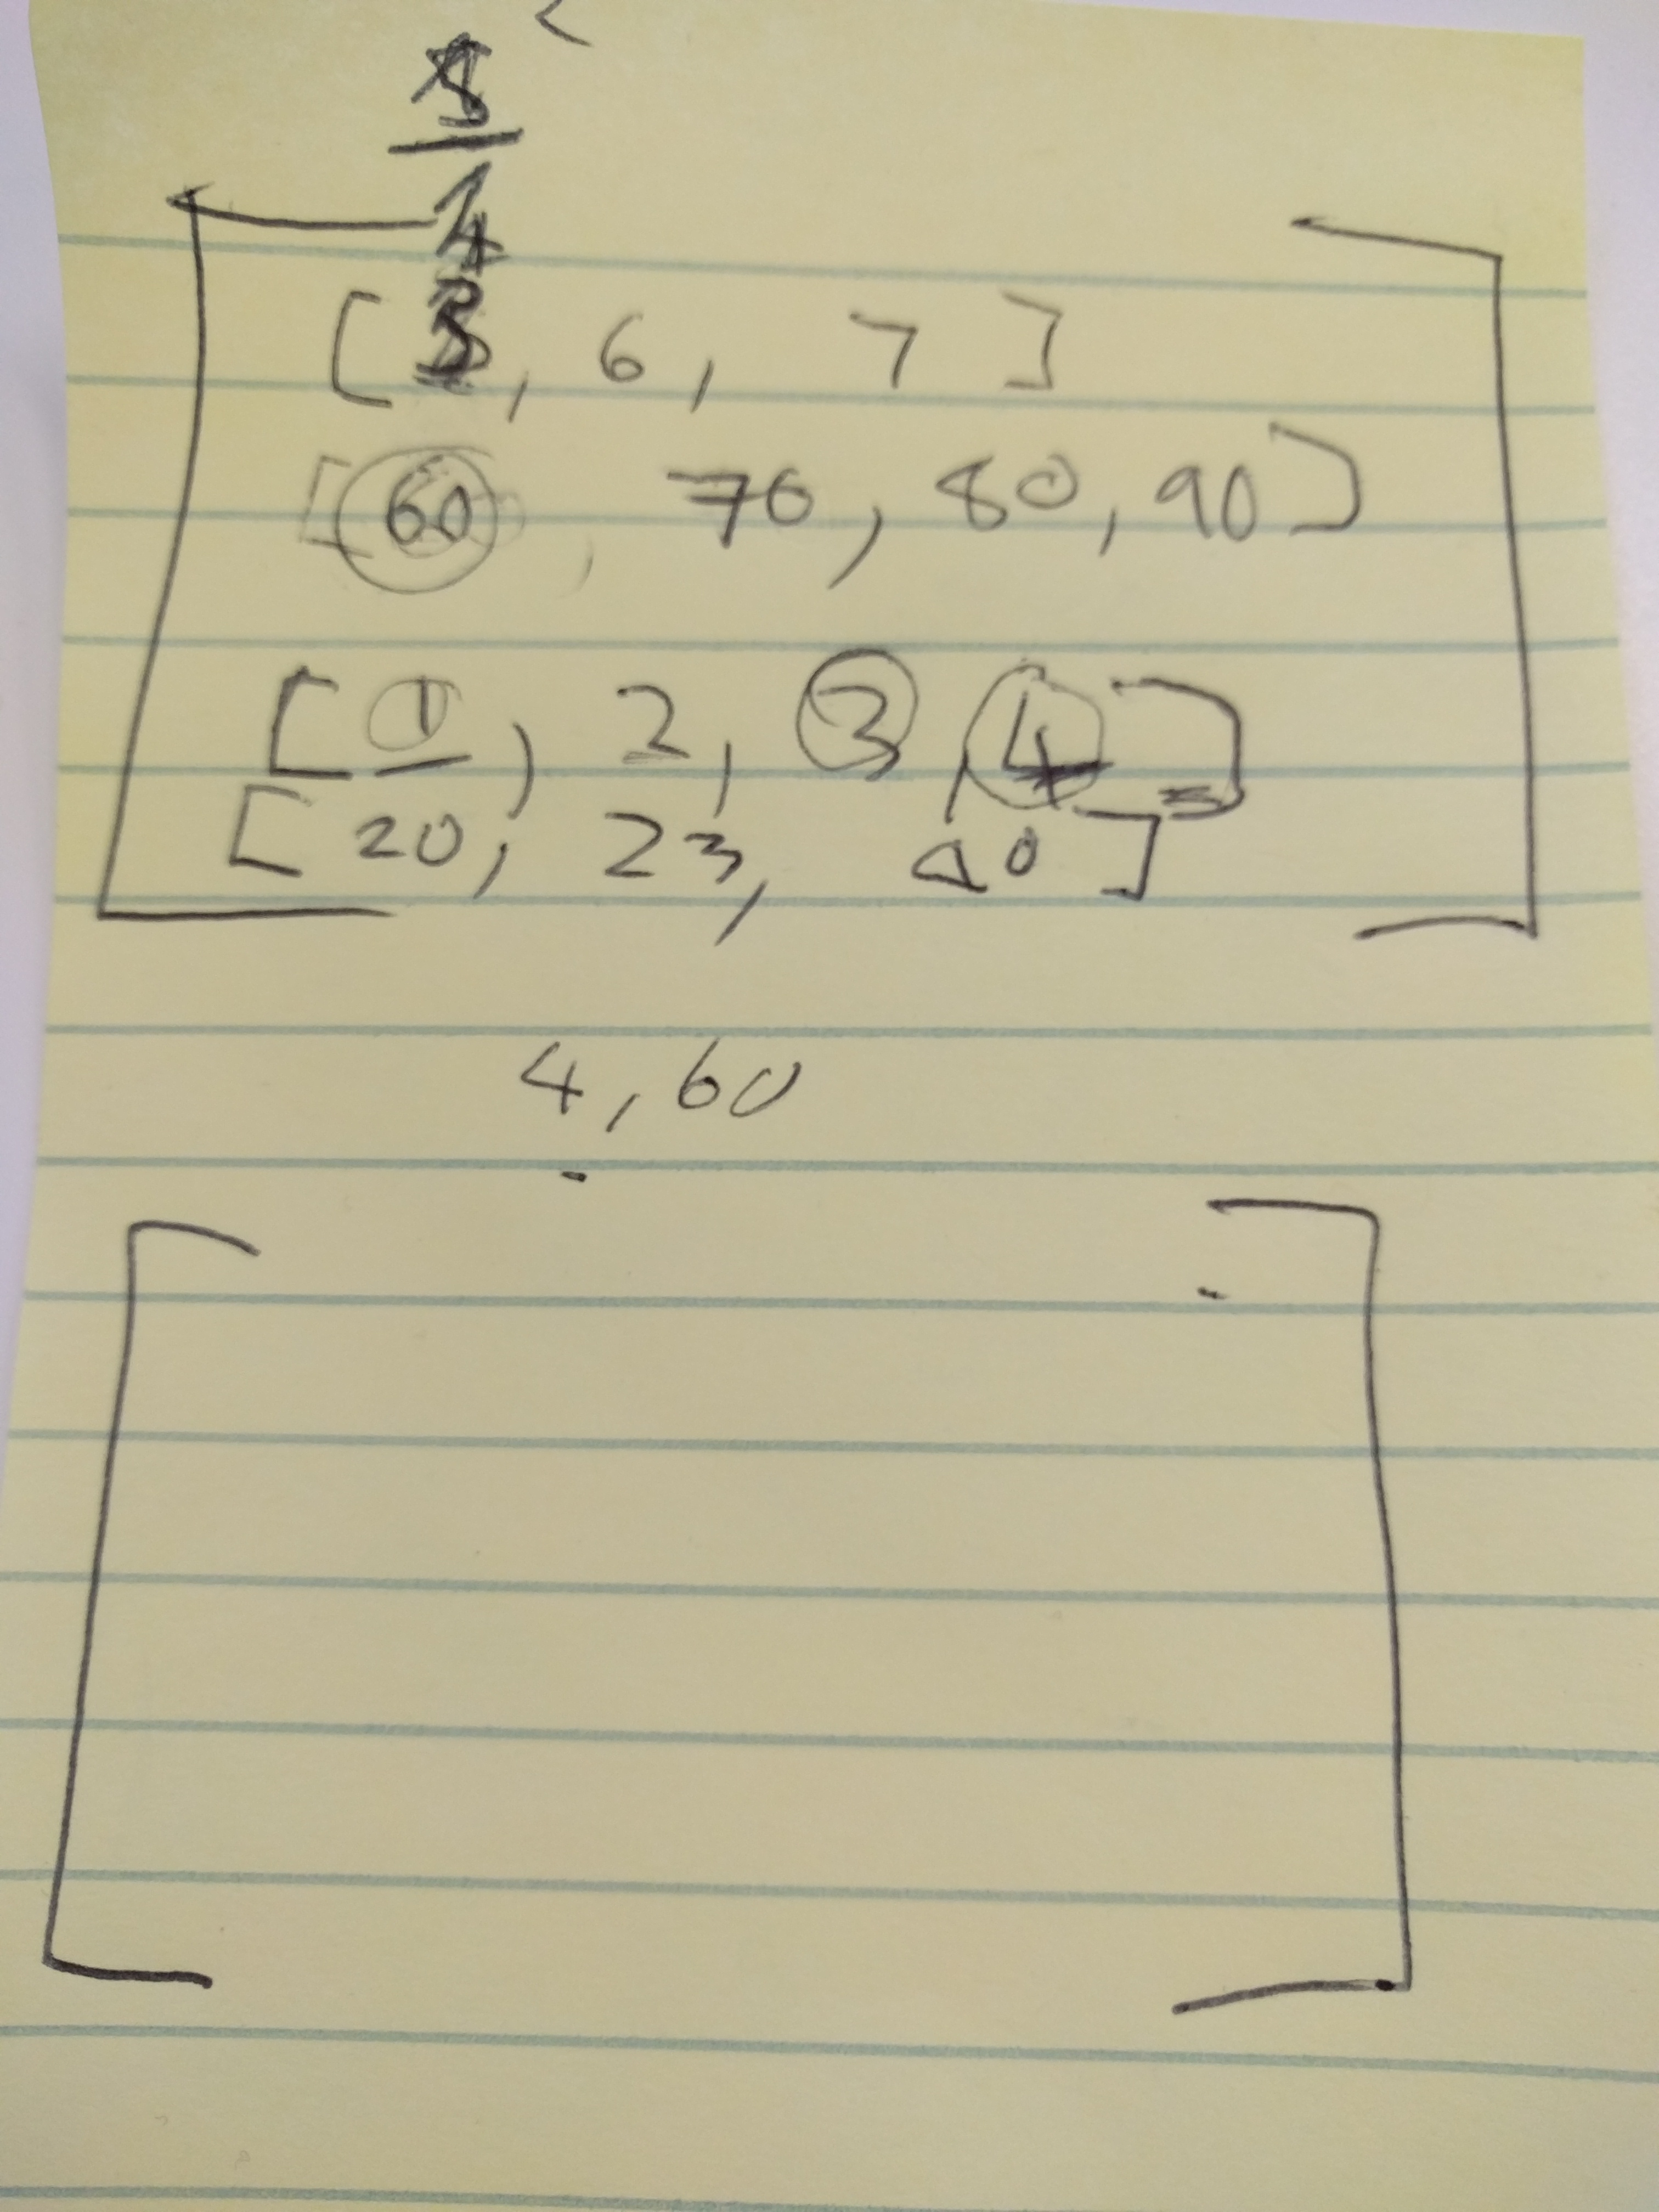 [ , 6, 7 ]
[ 60, 70, 80, 90 ]
[ 1, 2, 3, 4 ]
[ 20, 23, 90 ]
4, 60